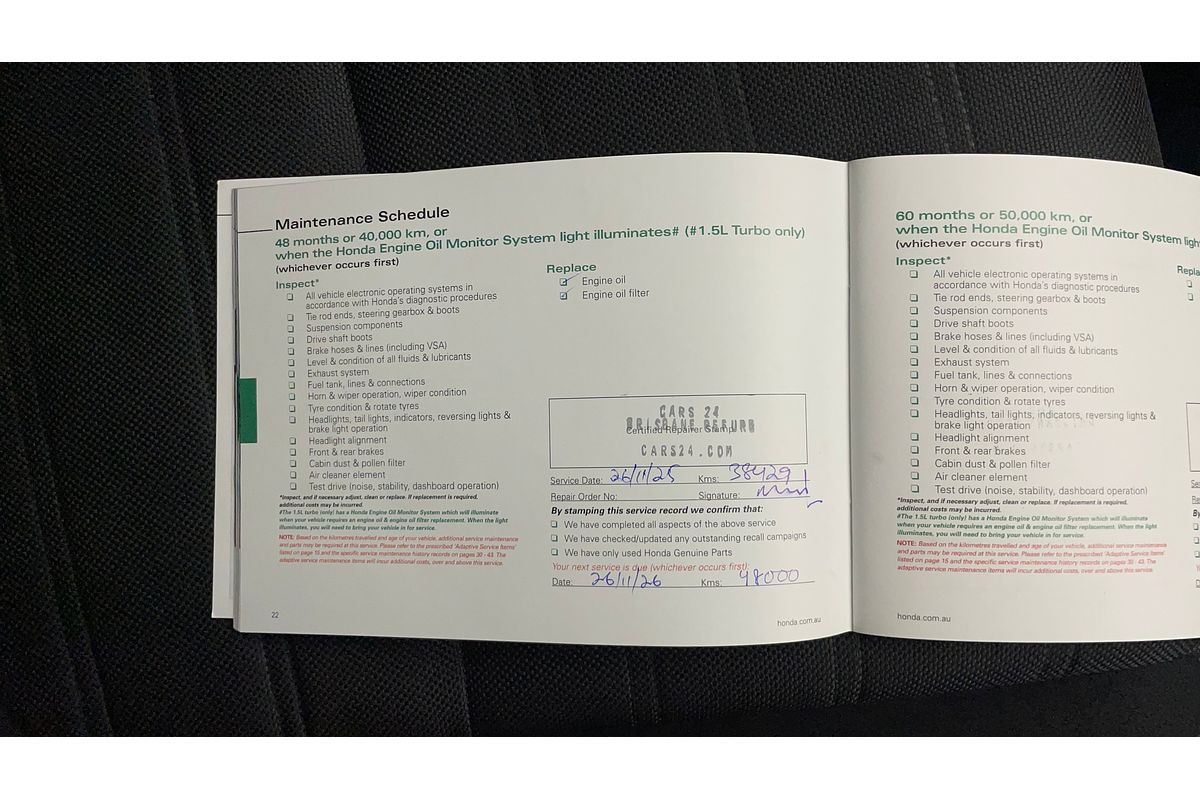 Maintenance Schedule
48 months or 40,000 km, or
when the Honda Engine Oil Monitor System light illuminates# (#1.5L Turbo only)
(whichever occurs first)
Inspect*
All vehicle electronic operating systems in
accordance with Honda's diagnostic procedures
Tie rod ends, steering gearbox & boots
Suspension components
Drive shaft boots
Brake hoses & lines (including VSA)
Level & condition of all fluids & lubricants
Exhaust system
Fuel tank, lines & connections
Horn & wiper operation, wiper condition
Tyre condition & rotate tyres
Headlights, tail lights, indicators, reversing lights &
brake light operation
Headlight alignment
Front & rear brakes
Cabin dust & pollen filter
Air cleaner element
Test drive (noise, stability, dashboard operation)
*Inspect, and if necessary adjust, clean or replace. If replacement is required,
additional costs may be incurred.
#The 1.5L turbo (only) has a Honda Engine Oil Monitor System which will illuminate
when your vehicle requires an engine oil & engine oil filter replacement. When the light
illuminates, you will need to bring your vehicle in for service.
NOTE: Based on the kilometres travelled and age of your vehicle, additional service maintenance
and parts may be required at this service. Please refer to the prescribed 'Adaptive Service Items'
listed on page 15 and the specific service maintenance history records on pages 30 - 43. The
adaptive service maintenance items will incur additional costs, over and above this service.
22
Replace
Engine oil
Engine oil filter
CARS 24
BRISBANE
Certified Repairer Stamp
CARS24.COM
Service Date: 26/11/25 Kms: 38429
Repair Order No: Signature:
By stamping this service record we confirm that:
We have completed all aspects of the above service
We have checked/updated any outstanding recall campaigns
We have only used Honda Genuine Parts
Your next service is due (whichever occurs first):
Date: 26/11/26 Kms: 48000
honda.com.au
60 months or 50,000 km, or
when the Honda Engine Oil Monitor System
(whichever occurs first)
Inspect*
All vehicle electronic operating systems in
accordance with Honda's diagnostic procedures
Tie rod ends, steering gearbox & boots
Suspension components
Drive shaft boots
Brake hoses & lines (including VSA)
Level & condition of all fluids & lubricants
Exhaust system
Fuel tank, lines & connections
Horn & wiper operation, wiper condition
Tyre condition & rotate tyres
Headlights, tail lights, indicators, reversing lights &
brake light operation
Headlight alignment
Front & rear brakes
Cabin dust & pollen filter
Air cleaner element
Test drive (noise, stability, dashboard operation)
*Inspect, and if necessary adjust, clean or replace. If replacement is required,
additional costs may be incurred.
#The 1.5L turbo (only) has a Honda Engine Oil Monitor System which will illuminate
when your vehicle requires an engine oil & engine oil filter replacement. When the light
illuminates, you will need to bring your vehicle in for service.
NOTE: Based on the kilometres travelled and age of your vehicle, additional service maintenance
and parts may be required at this service. Please refer to the prescribed 'Adaptive Service Items'
listed on page 15 and the specific service maintenance history records on pages 30 - 43. The
adaptive service maintenance items will incur additional costs, over and above this service.
honda.com.au